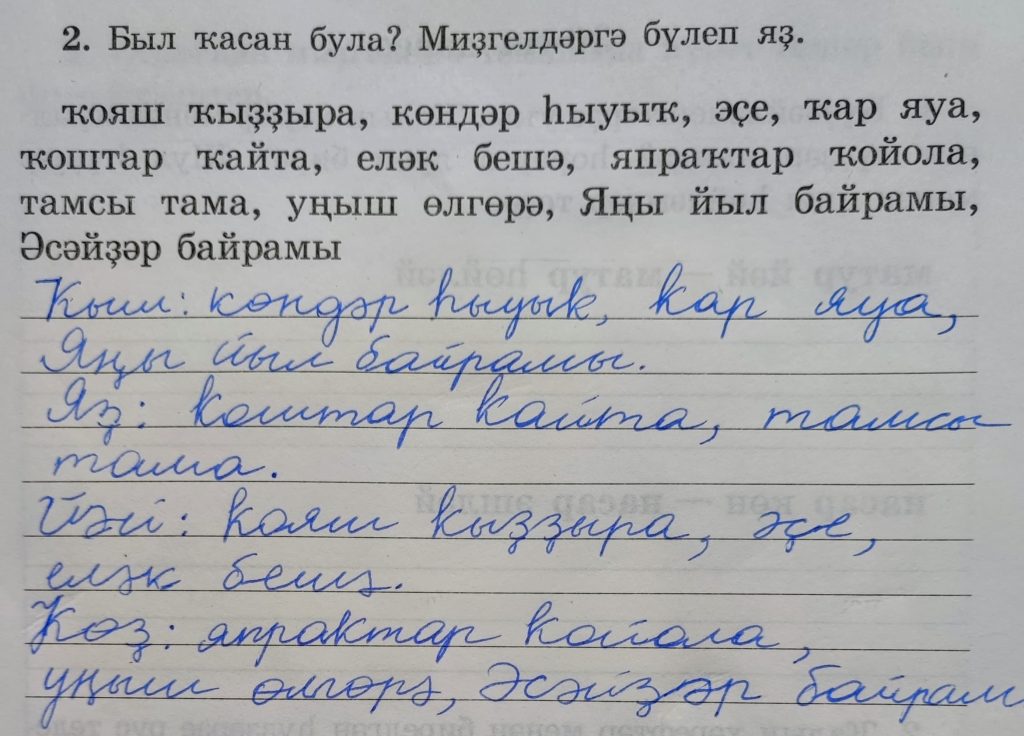 2. Был ҡасан була? Миҙгелдәргә бүлеп яҙ.
ҡояш ҡыҙҙыра, көндәр һыуыҡ, әҫе, ҡар яуа,
ҡоштар ҡайта, еләк бешә, япраҡтар ҡойола,
тамсы тама, уңыш өлгөрә, Яңы йыл байрамы,
Әсәйҙәр байрамы
Ҡыш: көндәр һыуыҡ, ҡар яуа,
Яңы йыл байрамы.
Яҙ: ҡоштар ҡайта, тамсы
тама.
Йәй: ҡояш ҡыҙҙыра, әҫе,
еләк бешә.
Көҙ: япраҡтар ҡойола,
уңыш өлгөрә, Әсәйҙәр байрам